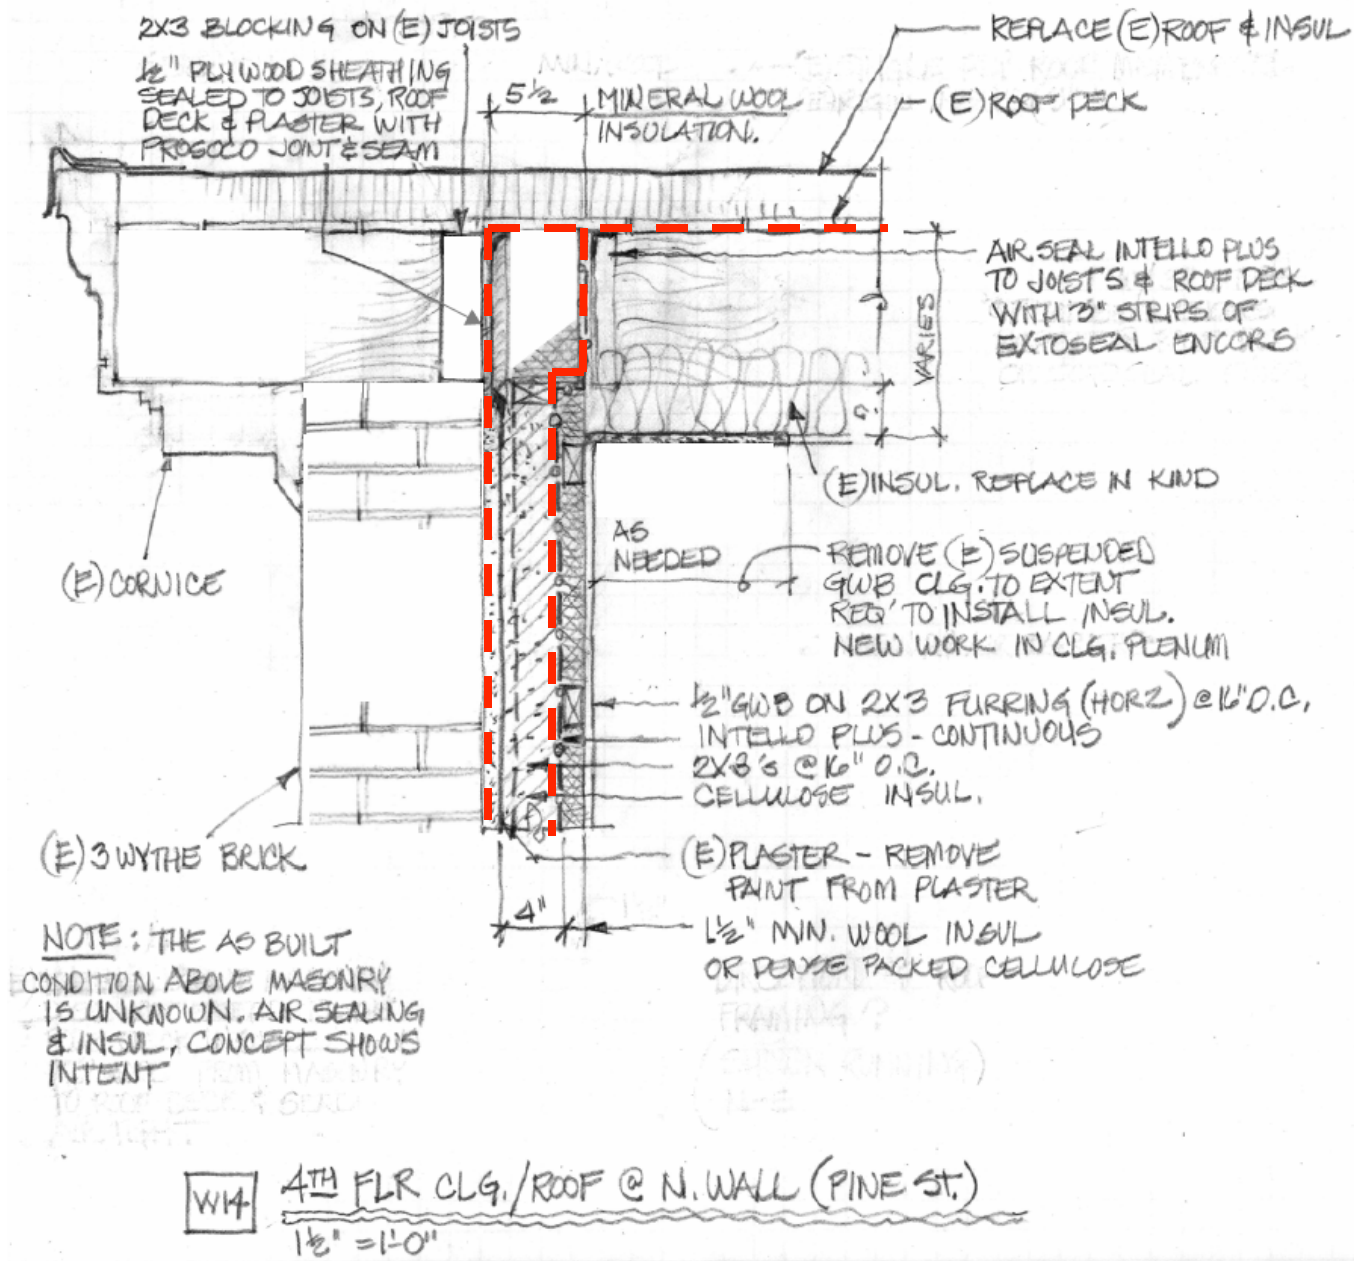 2X3 BLOCKING ON (E) JOISTS
½" PLYWOOD SHEATHING
SEALED TO JOISTS, ROOF
DECK & PLASTER WITH
PROSOCO JOINT & SEAM
5½
MINERAL WOOL
INSULATION.
REPLACE (E) ROOF & INSUL
(E) ROOF DECK
AIR SEAL INTELLO PLUS
TO JOISTS & ROOF DECK
WITH 3" STRIPS OF
EXTOSEAL ENCORS
VARIES
(E) INSUL. REPLACE IN KIND
AS
NEEDED
REMOVE (E) SUSPENDED
GWB CLG. TO EXTENT
REQ' TO INSTALL INSUL.
NEW WORK IN CLG. PLENUM
(E) CORNICE
½" GWB ON 2X3 FURRING (HORZ) @ 16" O.C.
INTELLO PLUS - CONTINUOUS
2X3'S @ 16" O.C.
CELLULOSE INSUL.
(E) 3 WYTHE BRICK
(E) PLASTER - REMOVE
PAINT FROM PLASTER
4"
1½" MIN. WOOL INSUL
OR DENSE PACKED CELLULOSE
NOTE: THE AS BUILT
CONDITION ABOVE MASONRY
IS UNKNOWN. AIR SEALING
& INSUL, CONCEPT SHOWS
INTENT
W14
4TH FLR CLG./ROOF @ N. WALL (PINE ST.)
1½" = 1'-0"